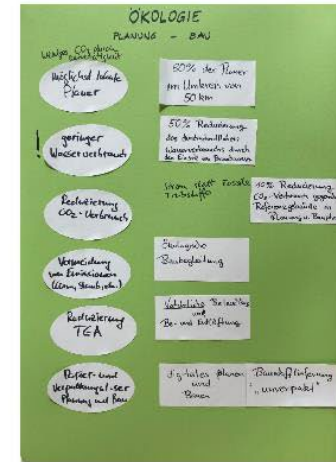 ÖKOLOGIE
PLANUNG - BAU
weniger CO2 durch
Möglichst lokale
Planer
50% der Planer
im Umkreis von
50 km
!
geringer
Wasserverbrauch
50% Reduzierung
des durchschnittlichen
Wasserverbrauchs durch
den Einsatz von
Strom statt fossile
Reduzierung
CO2-Verbrauch
10% Reduzierung
CO2-Verbrauch gegenüber
Referenzgebäude in
Planung u. Bauphase
Vermeidung
von Emissionen
(Lärm, Staub, etc.)
Ökologische
Baubegleitung
Reduzierung
TGA
Natürliche Belichtung
und
Be- und Entlüftung
Papier- und
Planung und Bau
digitales planen
und
Bauen
Baustofflieferung
"unverpackt"